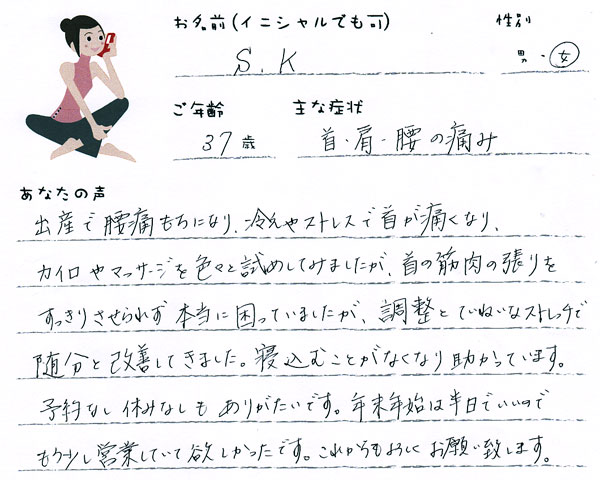 お名前(イニシャルでも可) 性別
S.K 男・女
ご年齢 主な症状
37歳 首・肩・腰の痛み
あなたの声
出産で腰痛もちになり、冷えやストレスで首が痛くなり、
カイロやマッサージを色々と試めしてみましたが、首の筋肉の張りを
すっきりさせられず本当に困っていましたが、調整とていねいなストレッチで
随分と改善してきました。寝込むことがなくなり助かっています。
予約なし休みなしもありがたいです。年末年始は半日でいいので
もう少し営業していて欲しかったです。これからもよろしくお願い致します。